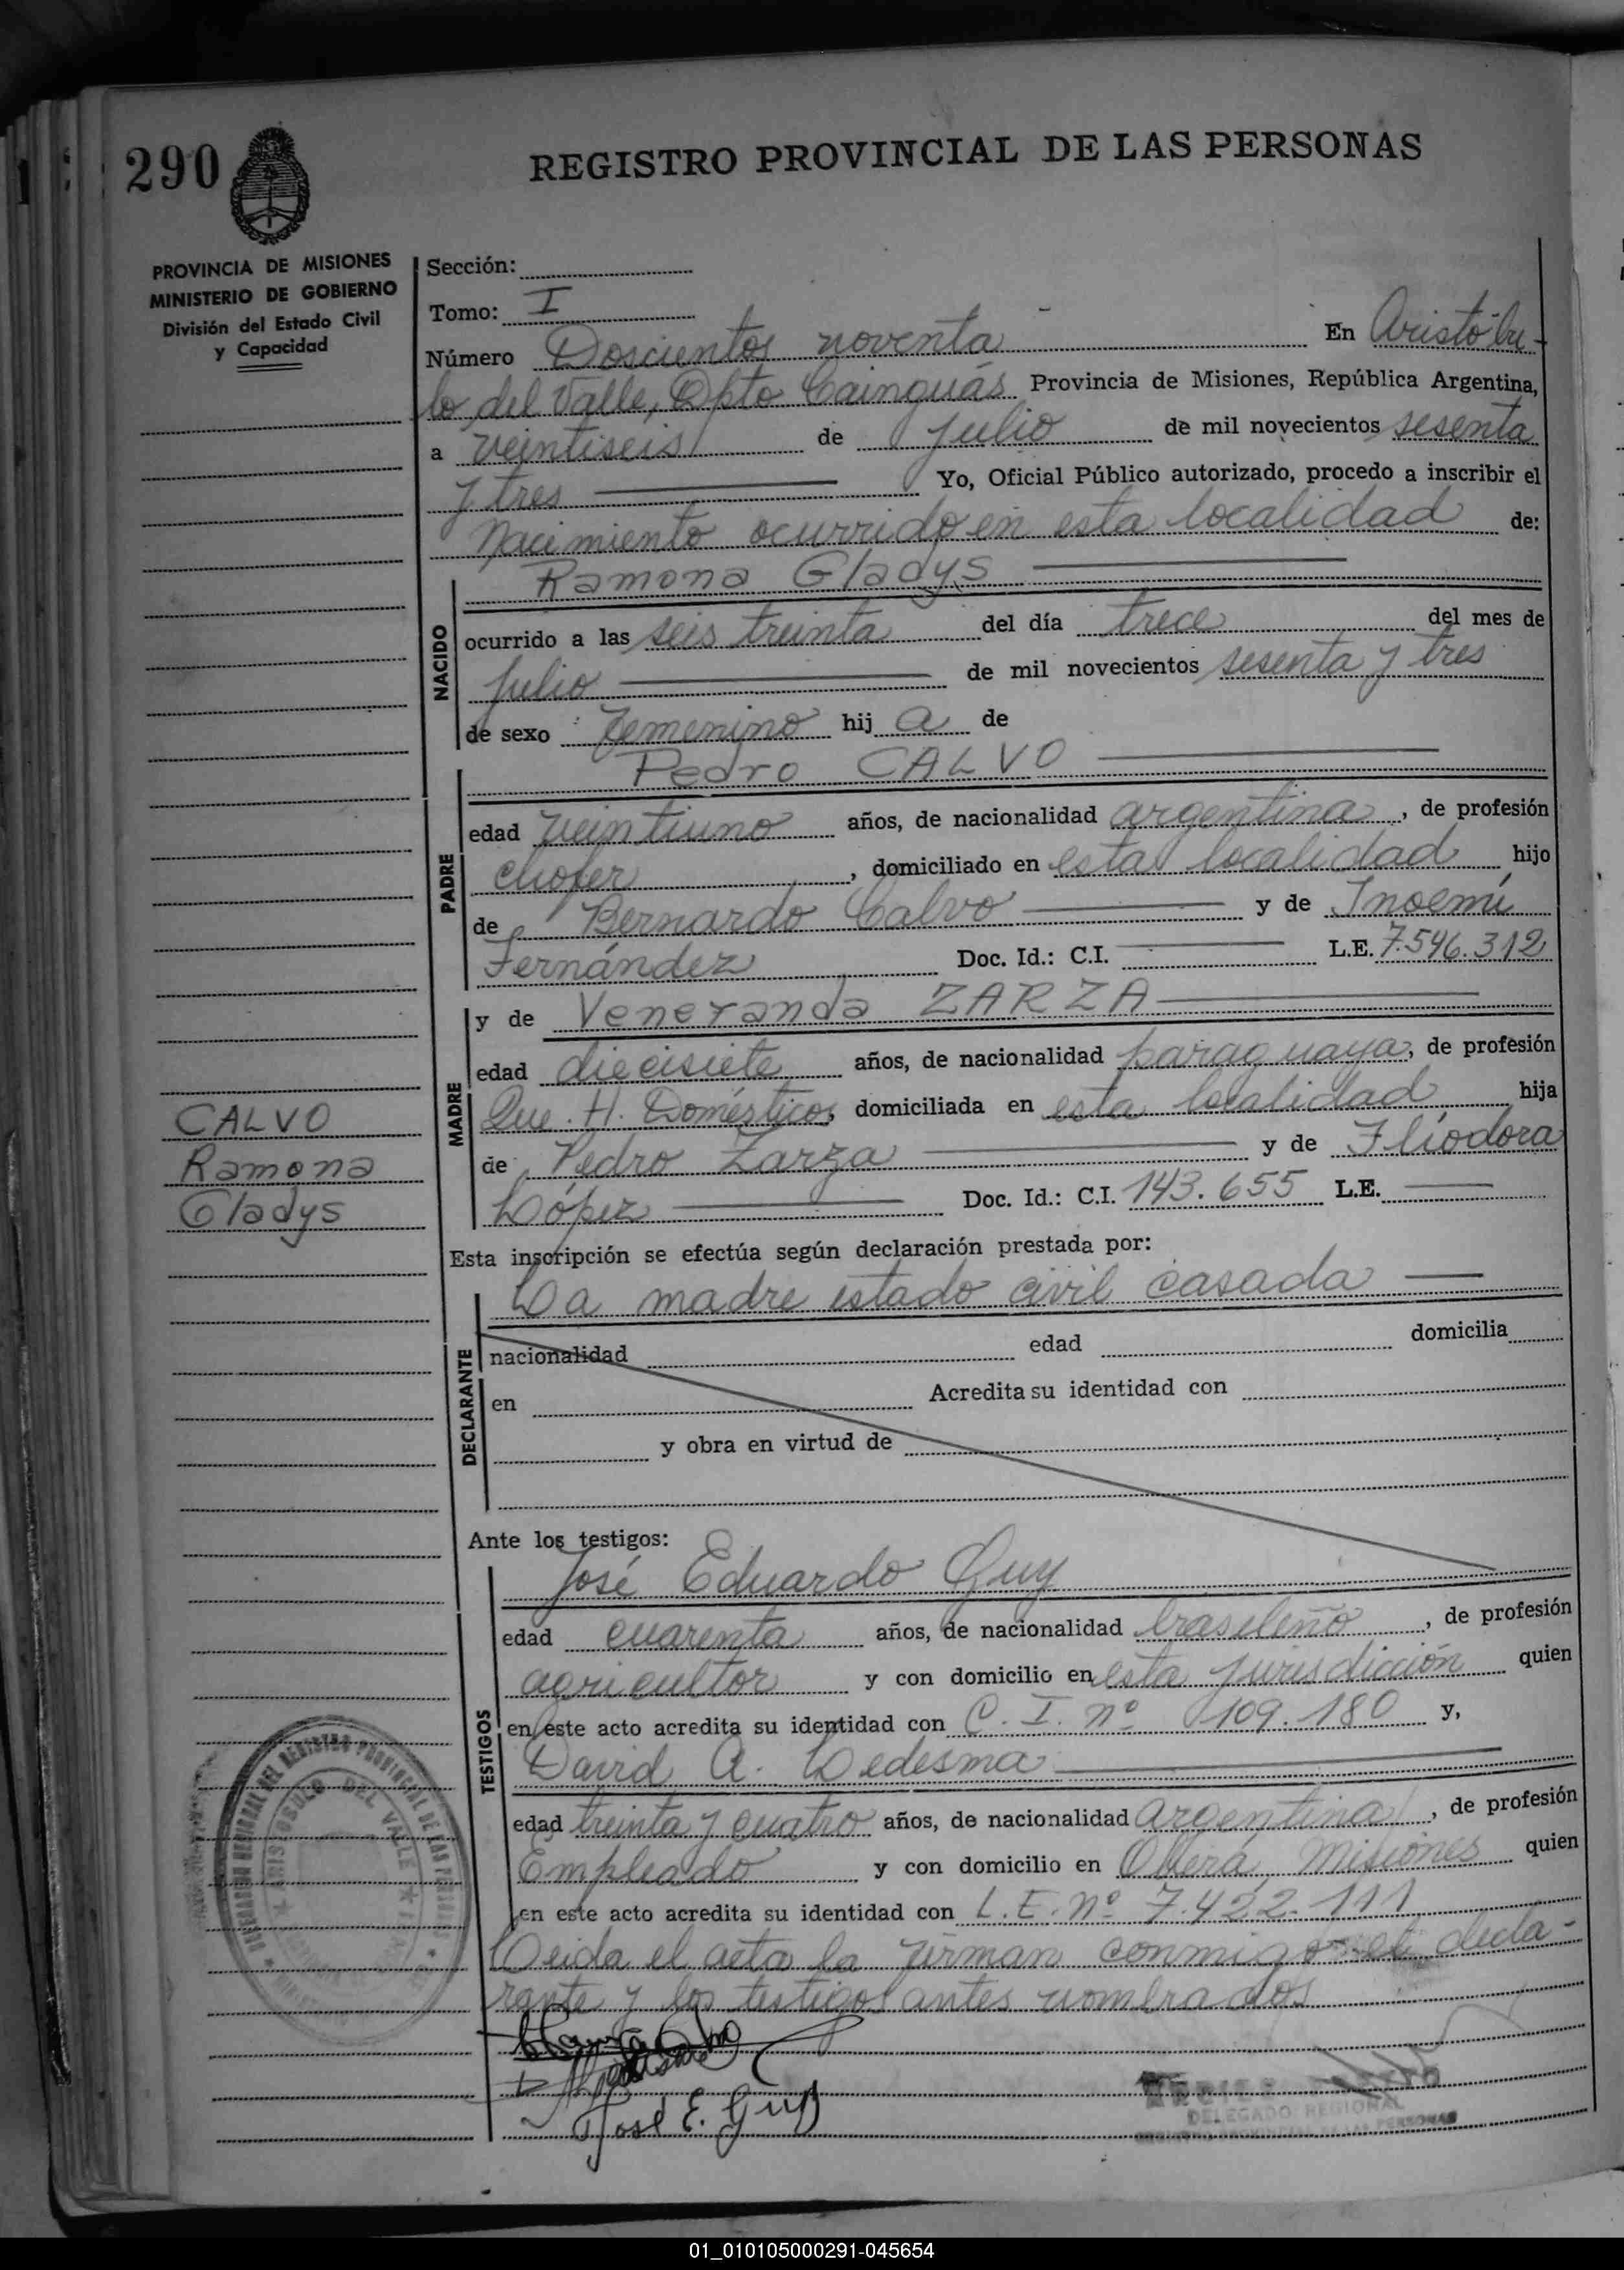 290
REGISTRO PROVINCIAL DE LAS PERSONAS
PROVINCIA DE MISIONES
MINISTERIO DE GOBIERNO
División del Estado Civil
y Capacidad
Sección:
Tomo: I
Número Doscientos noventa En Aristóbu-
lo del Valle, Dpto Cainguás Provincia de Misiones, República Argentina,
a veintiseis de julio de mil novecientos sesenta
y tres Yo, Oficial Público autorizado, procedo a inscribir el
Nacimiento ocurrido en esta localidad de:
NACIDO
Ramona Gladys
ocurrido a las seis treinta del día trece del mes de
julio de mil novecientos sesenta y tres
de sexo femenino hij a de
PADRE
Pedro CALVO
edad veintiuno años, de nacionalidad argentina, de profesión
chofer, domiciliado en esta localidad hijo
de Bernardo Calvo y de Inoemí
Fernández Doc. Id.: C.I. L.E. 7.546.312
MADRE
y de Veneranda ZARZA
edad diecisiete años, de nacionalidad paraguaya, de profesión
Que. H. Domésticos, domiciliada en esta localidad hija
de Pedro Zarza y de Fliodora
López Doc. Id.: C.I. 143.655 L.E.
CALVO
Ramona
Gladys
Esta inscripción se efectúa según declaración prestada por:
DECLARANTE
La madre estado civil casada
nacionalidad edad domicilia
en Acredita su identidad con
y obra en virtud de
Ante los testigos:
TESTIGOS
José Eduardo Guy
edad cuarenta años, de nacionalidad brasileño, de profesión
agricultor y con domicilio en esta jurisdicción quien
en este acto acredita su identidad con C. I. nº 109.180 y,
David A. Ledesma
edad treinta y cuatro años, de nacionalidad argentina, de profesión
Empleado y con domicilio en Oberá, Misiones quien
en este acto acredita su identidad con L.E. nº 7.422.111
Leida el acta la firman conmigo el decla-
rante y los testigos antes nombrados
José E. Guy
DELEGACION REGIONAL DEL REGISTRO PROVINCIAL DE LAS PERSONAS
ARISTOBULO DEL VALLE
DELEGADO REGIONAL
REGISTRO PROVINCIAL DE LAS PERSONAS
01_010105000291-045654